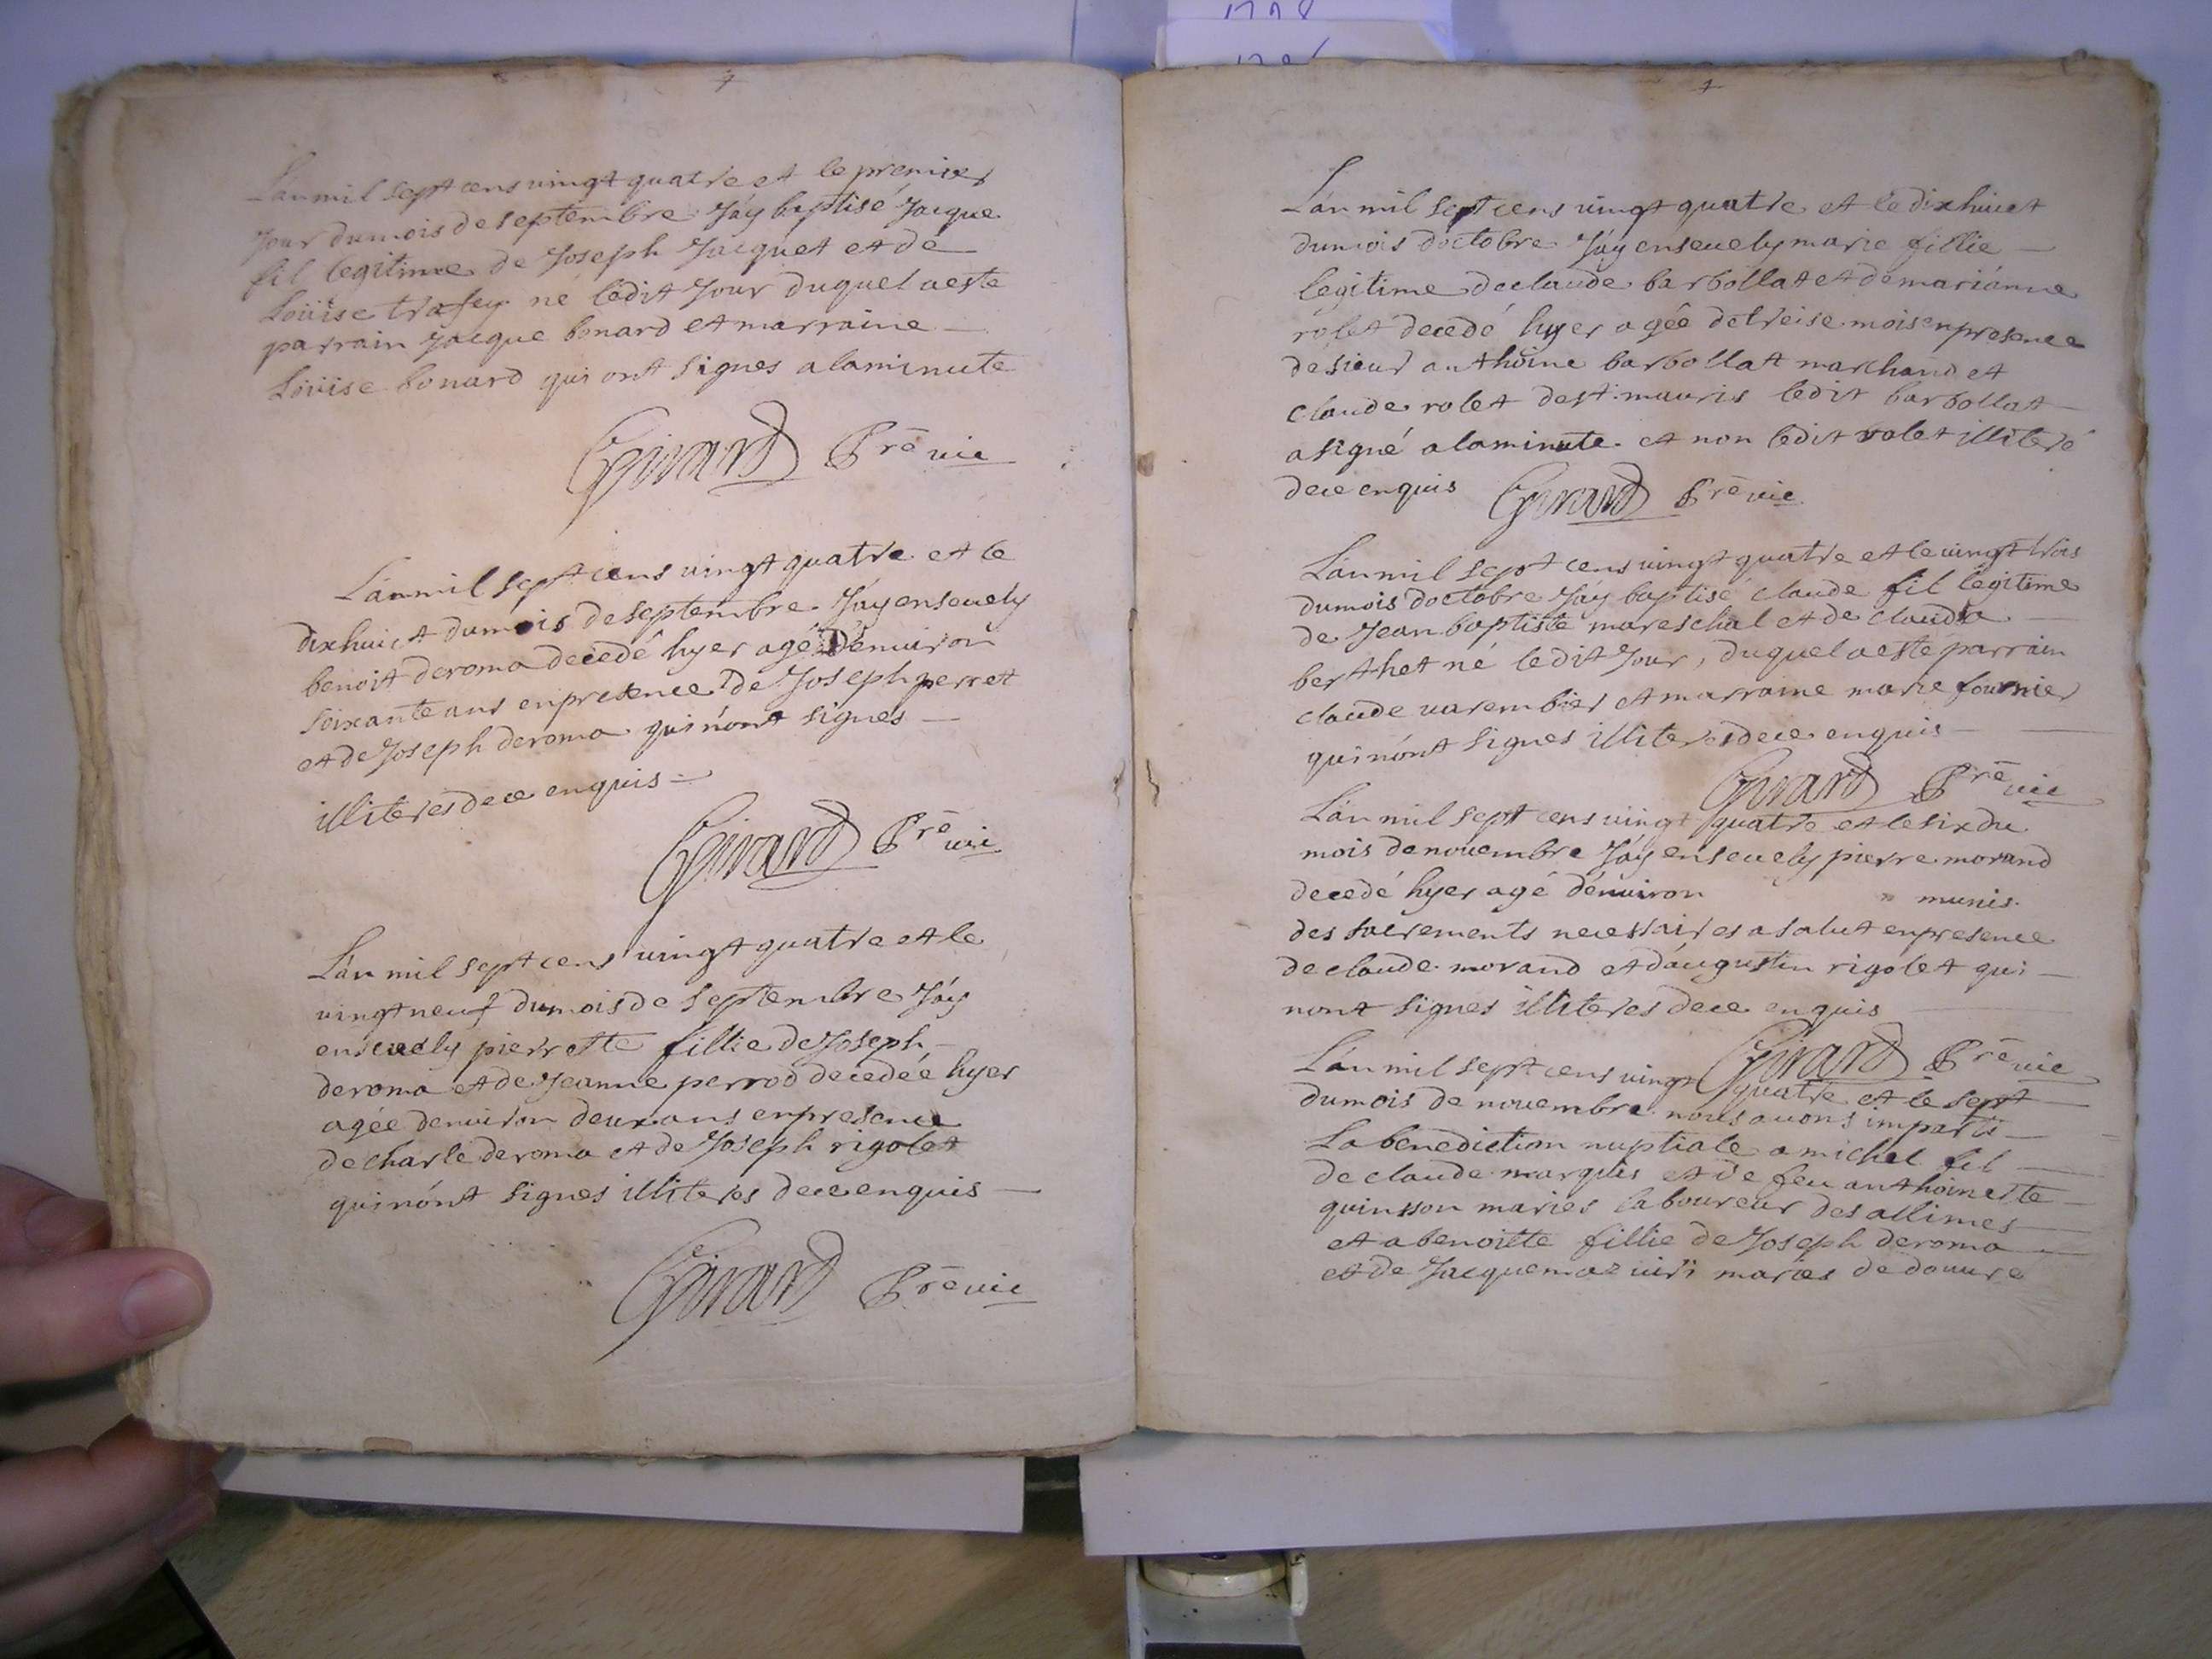 L'an mil sept cens vingt quatre et le premier
jour du mois de septembre J'ay baptisé Jacque
fil legitime de Joseph Jacquet et de
Loüise trafey né ledit Jour duquel a esté
parrain Jacque bonard et marraine
Loüise bonard qui ont signes a la minute
Girard Prē vic
L'an mil sept cens vingt quatre et le
dixhuict du mois de septembre J'ay ensevely
benoit deroma decedé hyer agé d'environ
soixante ans en presence de Joseph perret
et de Joseph deroma qui n'ont signés
illiterés de ce enquis
Girard Prē vic
L'an mil sept cens vingt quatre et le
vingt neuf du mois de septembre J'ay
ensevely pierrette fillie de Joseph
deroma et de Jeanne perrod decedée hyer
agée denviron deux ans en presence
de charle deroma et de Joseph rigolet
qui n'ont signes illiteres de ce enquis
Girard Prē vic
L'an mil sept cens vingt quatre et le dixhuict
du mois d'octobre J'ay ensevely marie fillie
legitime de claude barbollat et de marianne
rolet decedé hyer agée de treise mois en presence
de sieur anthoine barbollat marchand et
claude rolet de st mauris ledit barbollat
a signé a la minute et non ledit rolet illiteré
de ce enquis Girard Prē vic
L'an mil sept cens vingt quatre et le vingt trois
du mois d'octobre J'ay baptisé claude fil legitime
de Jean baptiste mareschal et de claudia
berthet né ledit Jour, duquel a esté parrain
claude varembier et marraine marie fournier
qui n'ont signes illiteres de ce enquis
Girard Prē vic
L'an mil sept cens vingt quatre et le six du
mois de novembre J'ay ensevely pierre morand
decedé hyer agé d'environ munis
des sacrements necessaires a salut en presence
de claude morand et d'augustin rigolet qui
nont signes illiteres de ce enquis
Girard Prē vic
L'an mil sept cens vingt quatre et le sept
du mois de novembre nous avons imparti
la benediction nuptiale a michel fil
de claude marquis et de feu anthoinette
quinsson maries laboureur des allimes
et a benoitte fillie de Joseph deroma
et de Jacquemaz maries de douvre